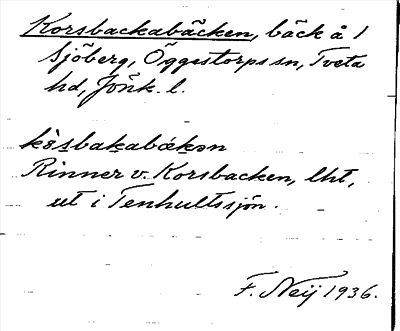 Korsbackabäcken, bäck å 1
Sjöberg, Öggestorps sn, Tveta
hd, Jönk. l.
kòsbakabækən
Rinner v. Korsbacken, lht,
ut i Tenhultssjön.
F. Neij 1936.